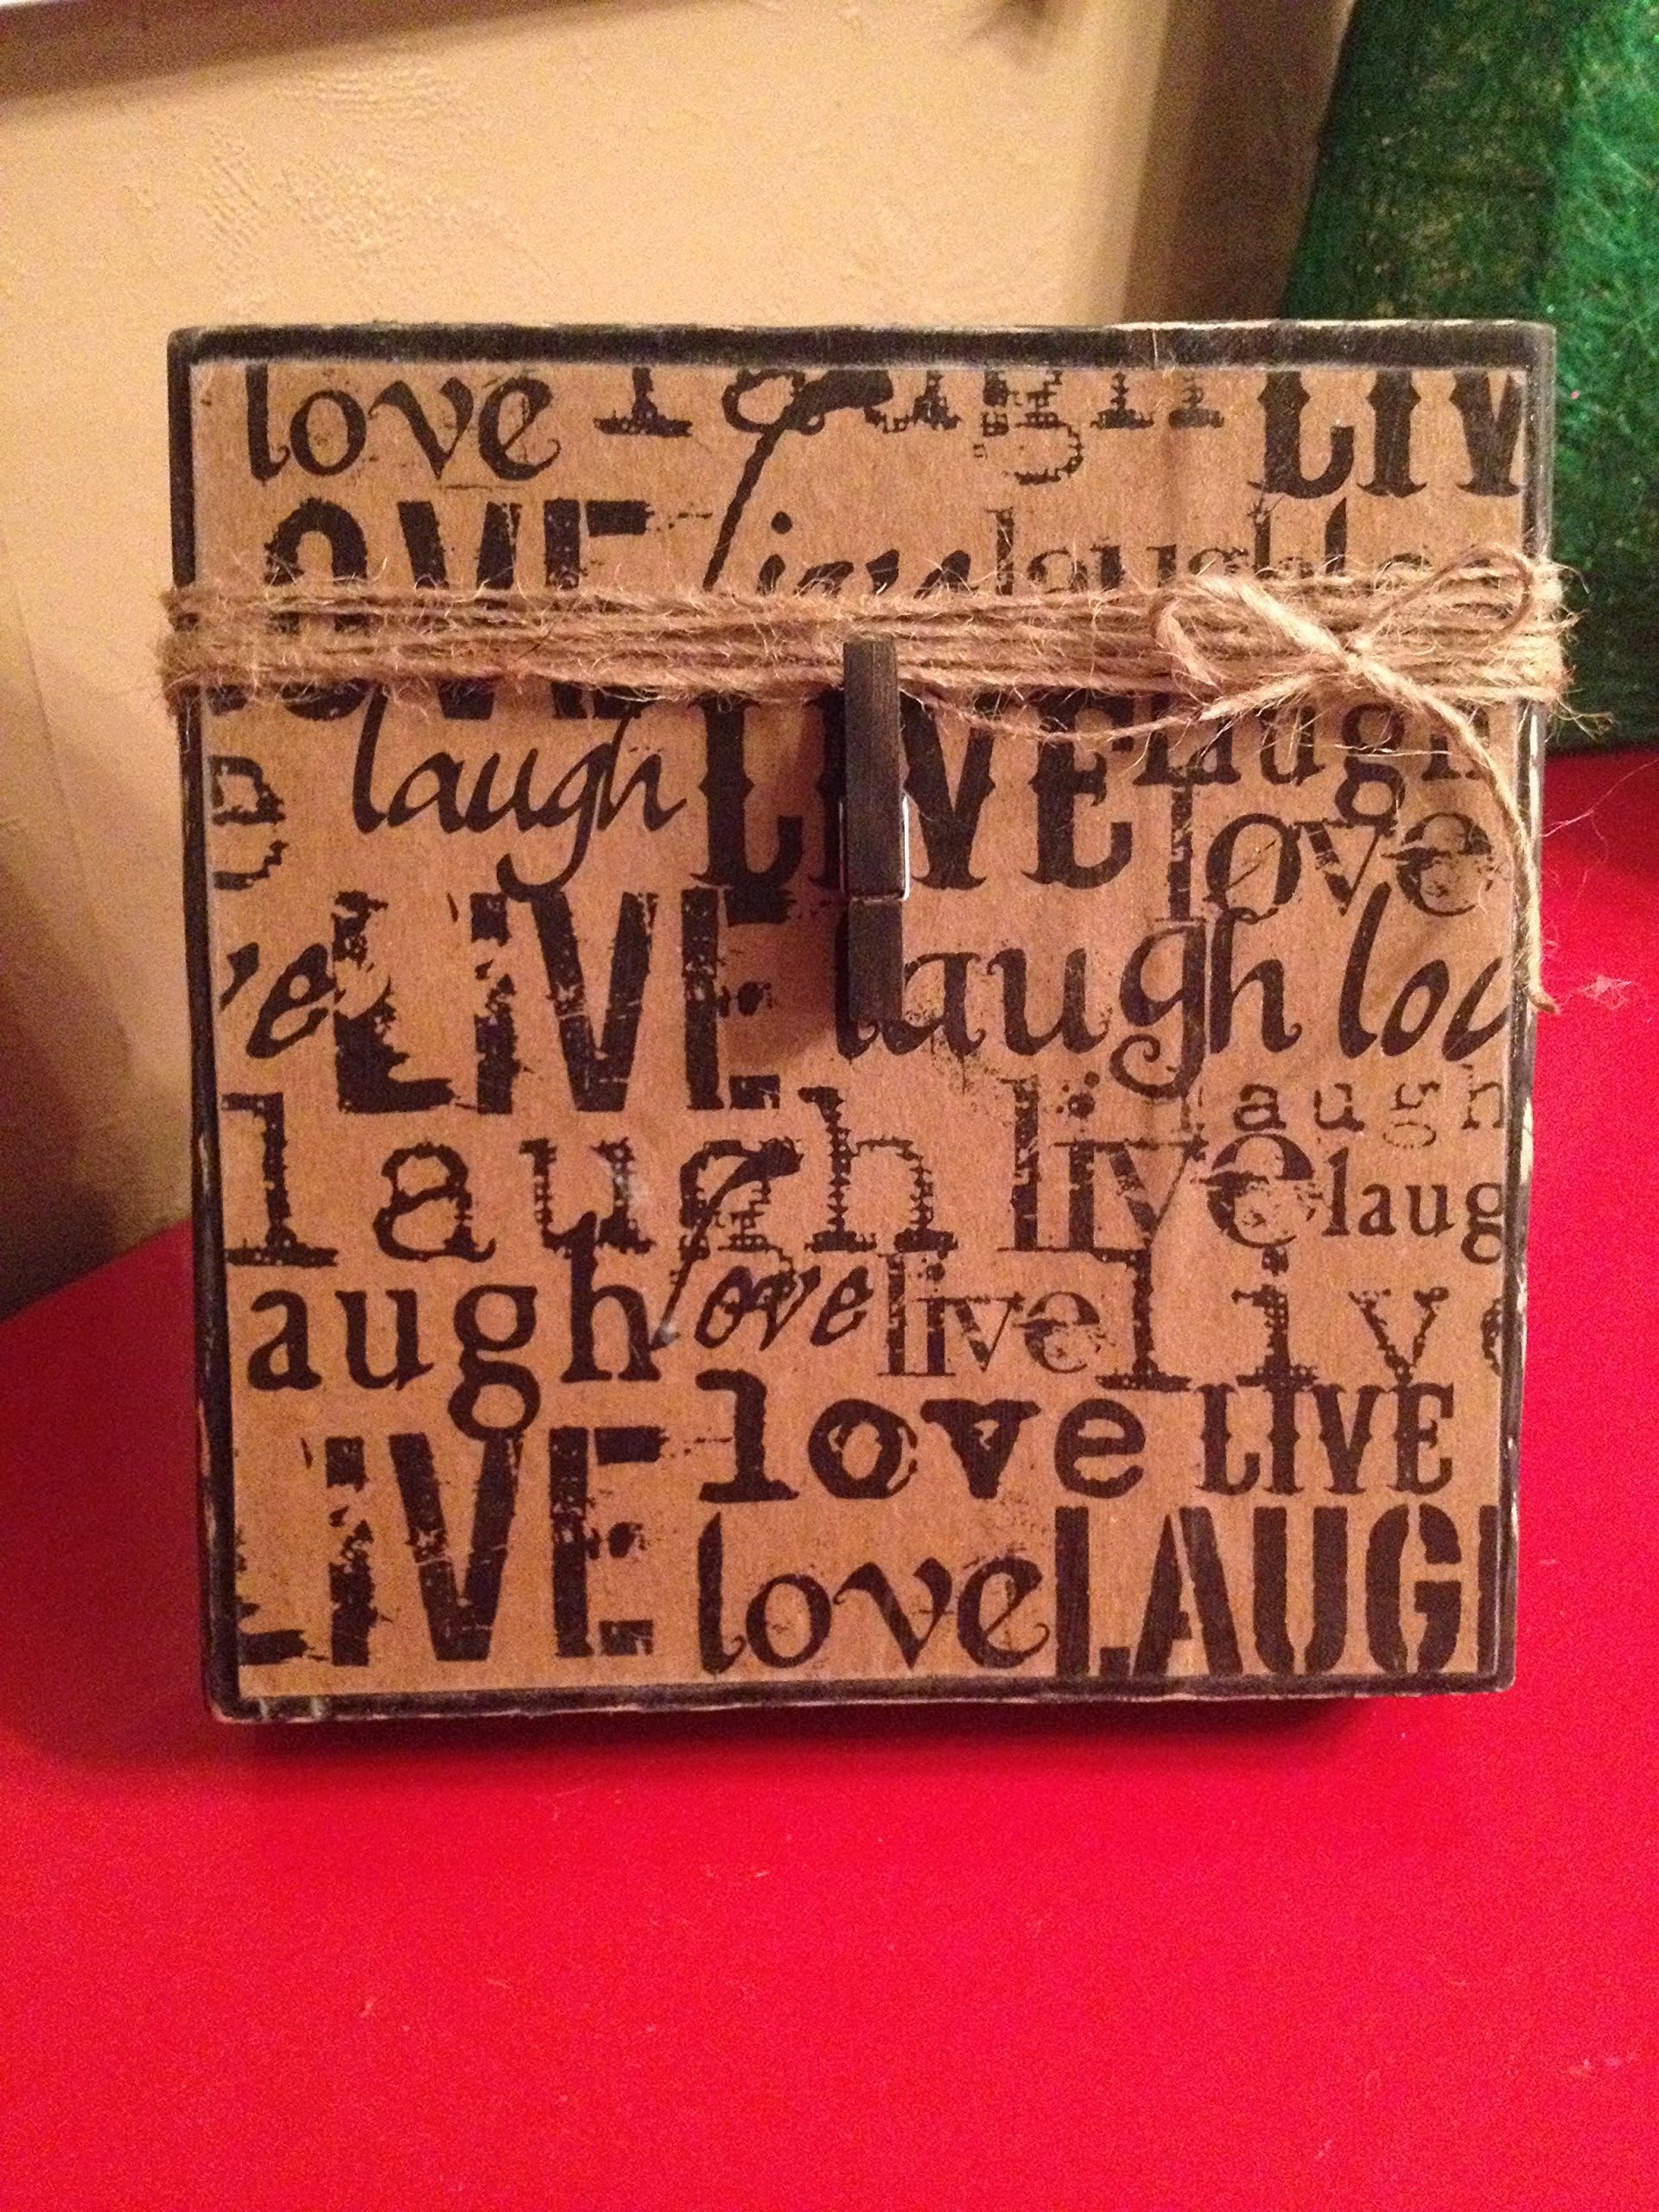 love laugh LIV
LOVE live laugh
laugh LIVE laugh
love
ve LIVE laugh lov
augh
laugh live laug
augh love live live
love LIVE
LIVE love LAUGH